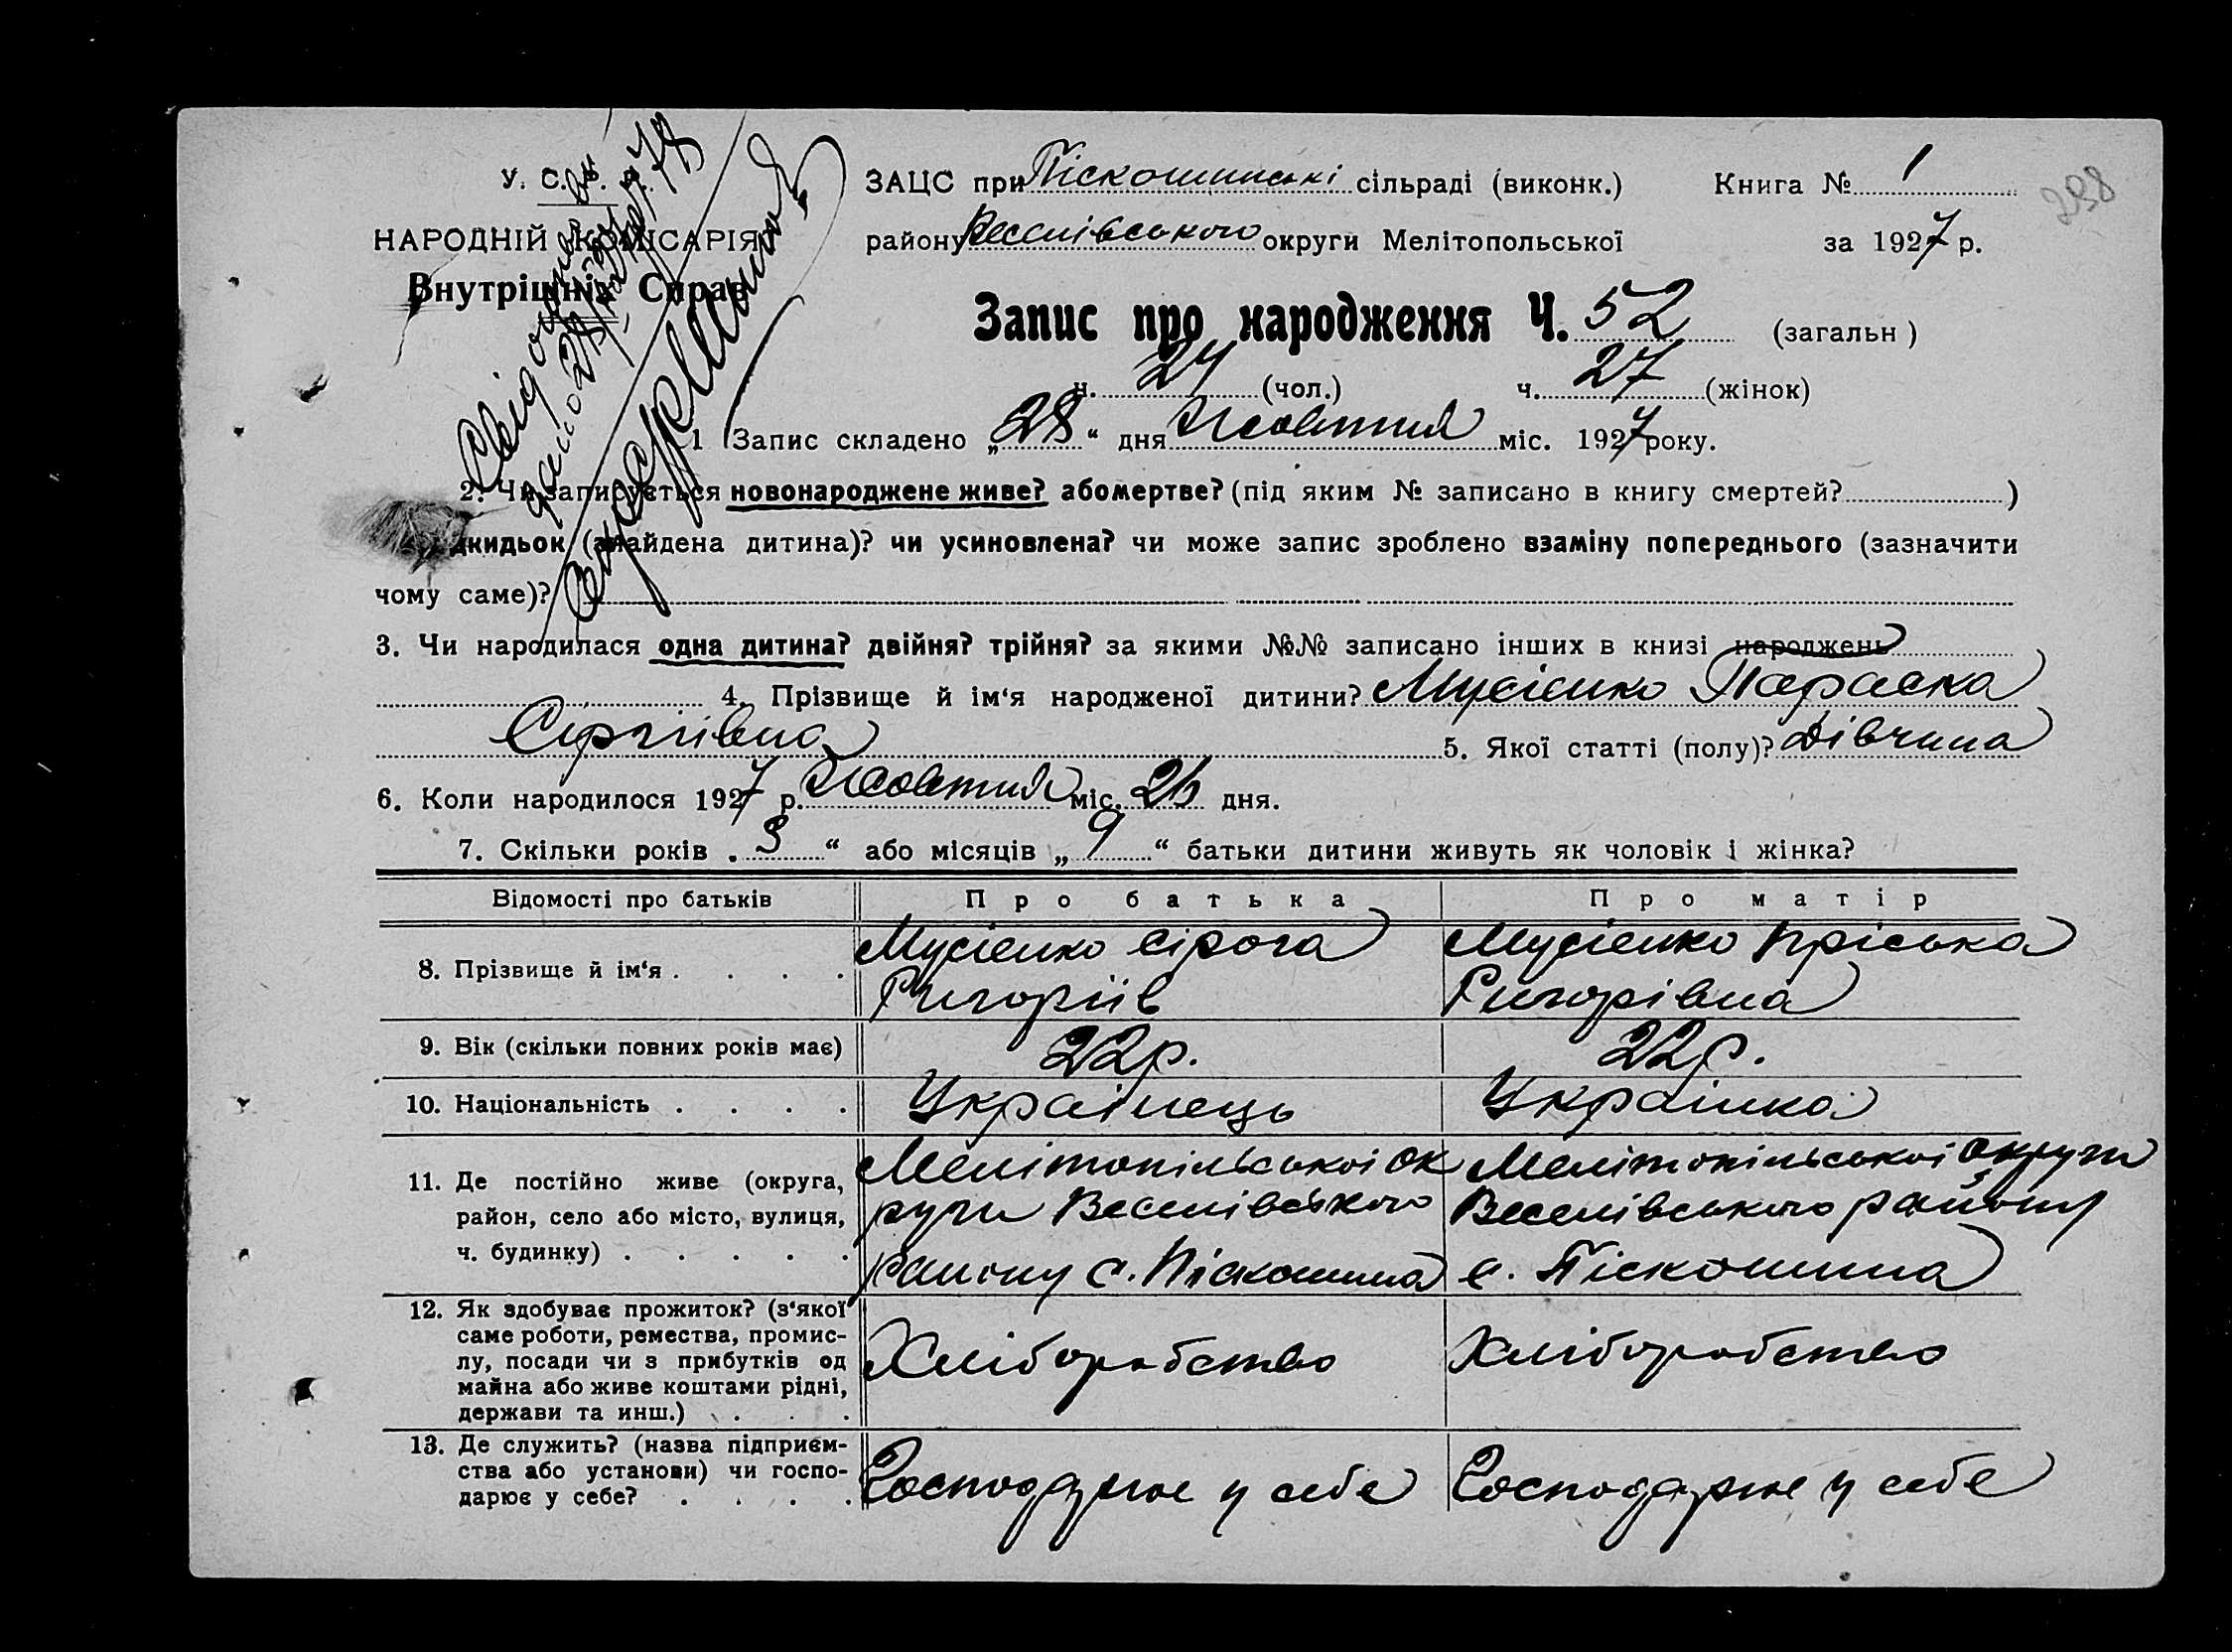 У. С.
НАРОДНІЙ КОМІСАРІЯТ
Внутрішніх Справ
ЗАЦС при Піскошинські сільраді (виконк.) Книга № 1
298
району Веселівського округи Мелітопольської за 1927 р.
Запис про народження Ч. 52 (загальн)
ч. 24 (чол.) ч. 27 (жінок)
1 Запис складено „28“ дня Жовтня міс. 1927 року.
2. Чи записується новонароджене живе? або мертве? (під яким № записано в книгу смертей? )
дкидьок (знайдена дитина)? чи усиновлена? чи може запис зроблено взаміну попереднього (зазначити
чому саме)?
3. Чи народилася одна дитина? двійня? трійня? за якими №№ записано інших в книзі народжень
4. Прізвище й ім‘я народженої дитини? Мусієнко Параска
Сергіівна 5. Якої статті (полу)? Дівчина
6. Коли народилося 1927 р. Жовтня міс. 26 дня.
7. Скільки років „3“ або місяців „9“ батьки дитини живуть як чоловік і жінка?
Відомості про батьків Про батька Про матір
8. Прізвище й ім‘я . . . . Мусіенко Сірога Мусіенко Пріська
Григоріів Григорівна
9. Вік (скільки повних років має) 22р. 22р.
10. Національність . . . . Українець Українка
11. Де постійно живе (округа, Мелітопільськоі ок Мелітопільськоі округи
район, село або місто, вулиця, руги Веселівського Веселівського району
ч. будинку) . . . . . району с. Піскошина с. Піскошина
12. Як здобуває прожиток? (з‘якої
саме роботи, ремества, промис-
лу, посади чи з прибутків од Хліборобство Хліборобство
майна або живе коштами рідні,
держави та инш.) . . .
13. Де служить? (назва підприєм-
ства або установи) чи госпо- Господарює у себе Господарює у себе
дарює у себе? . . . .